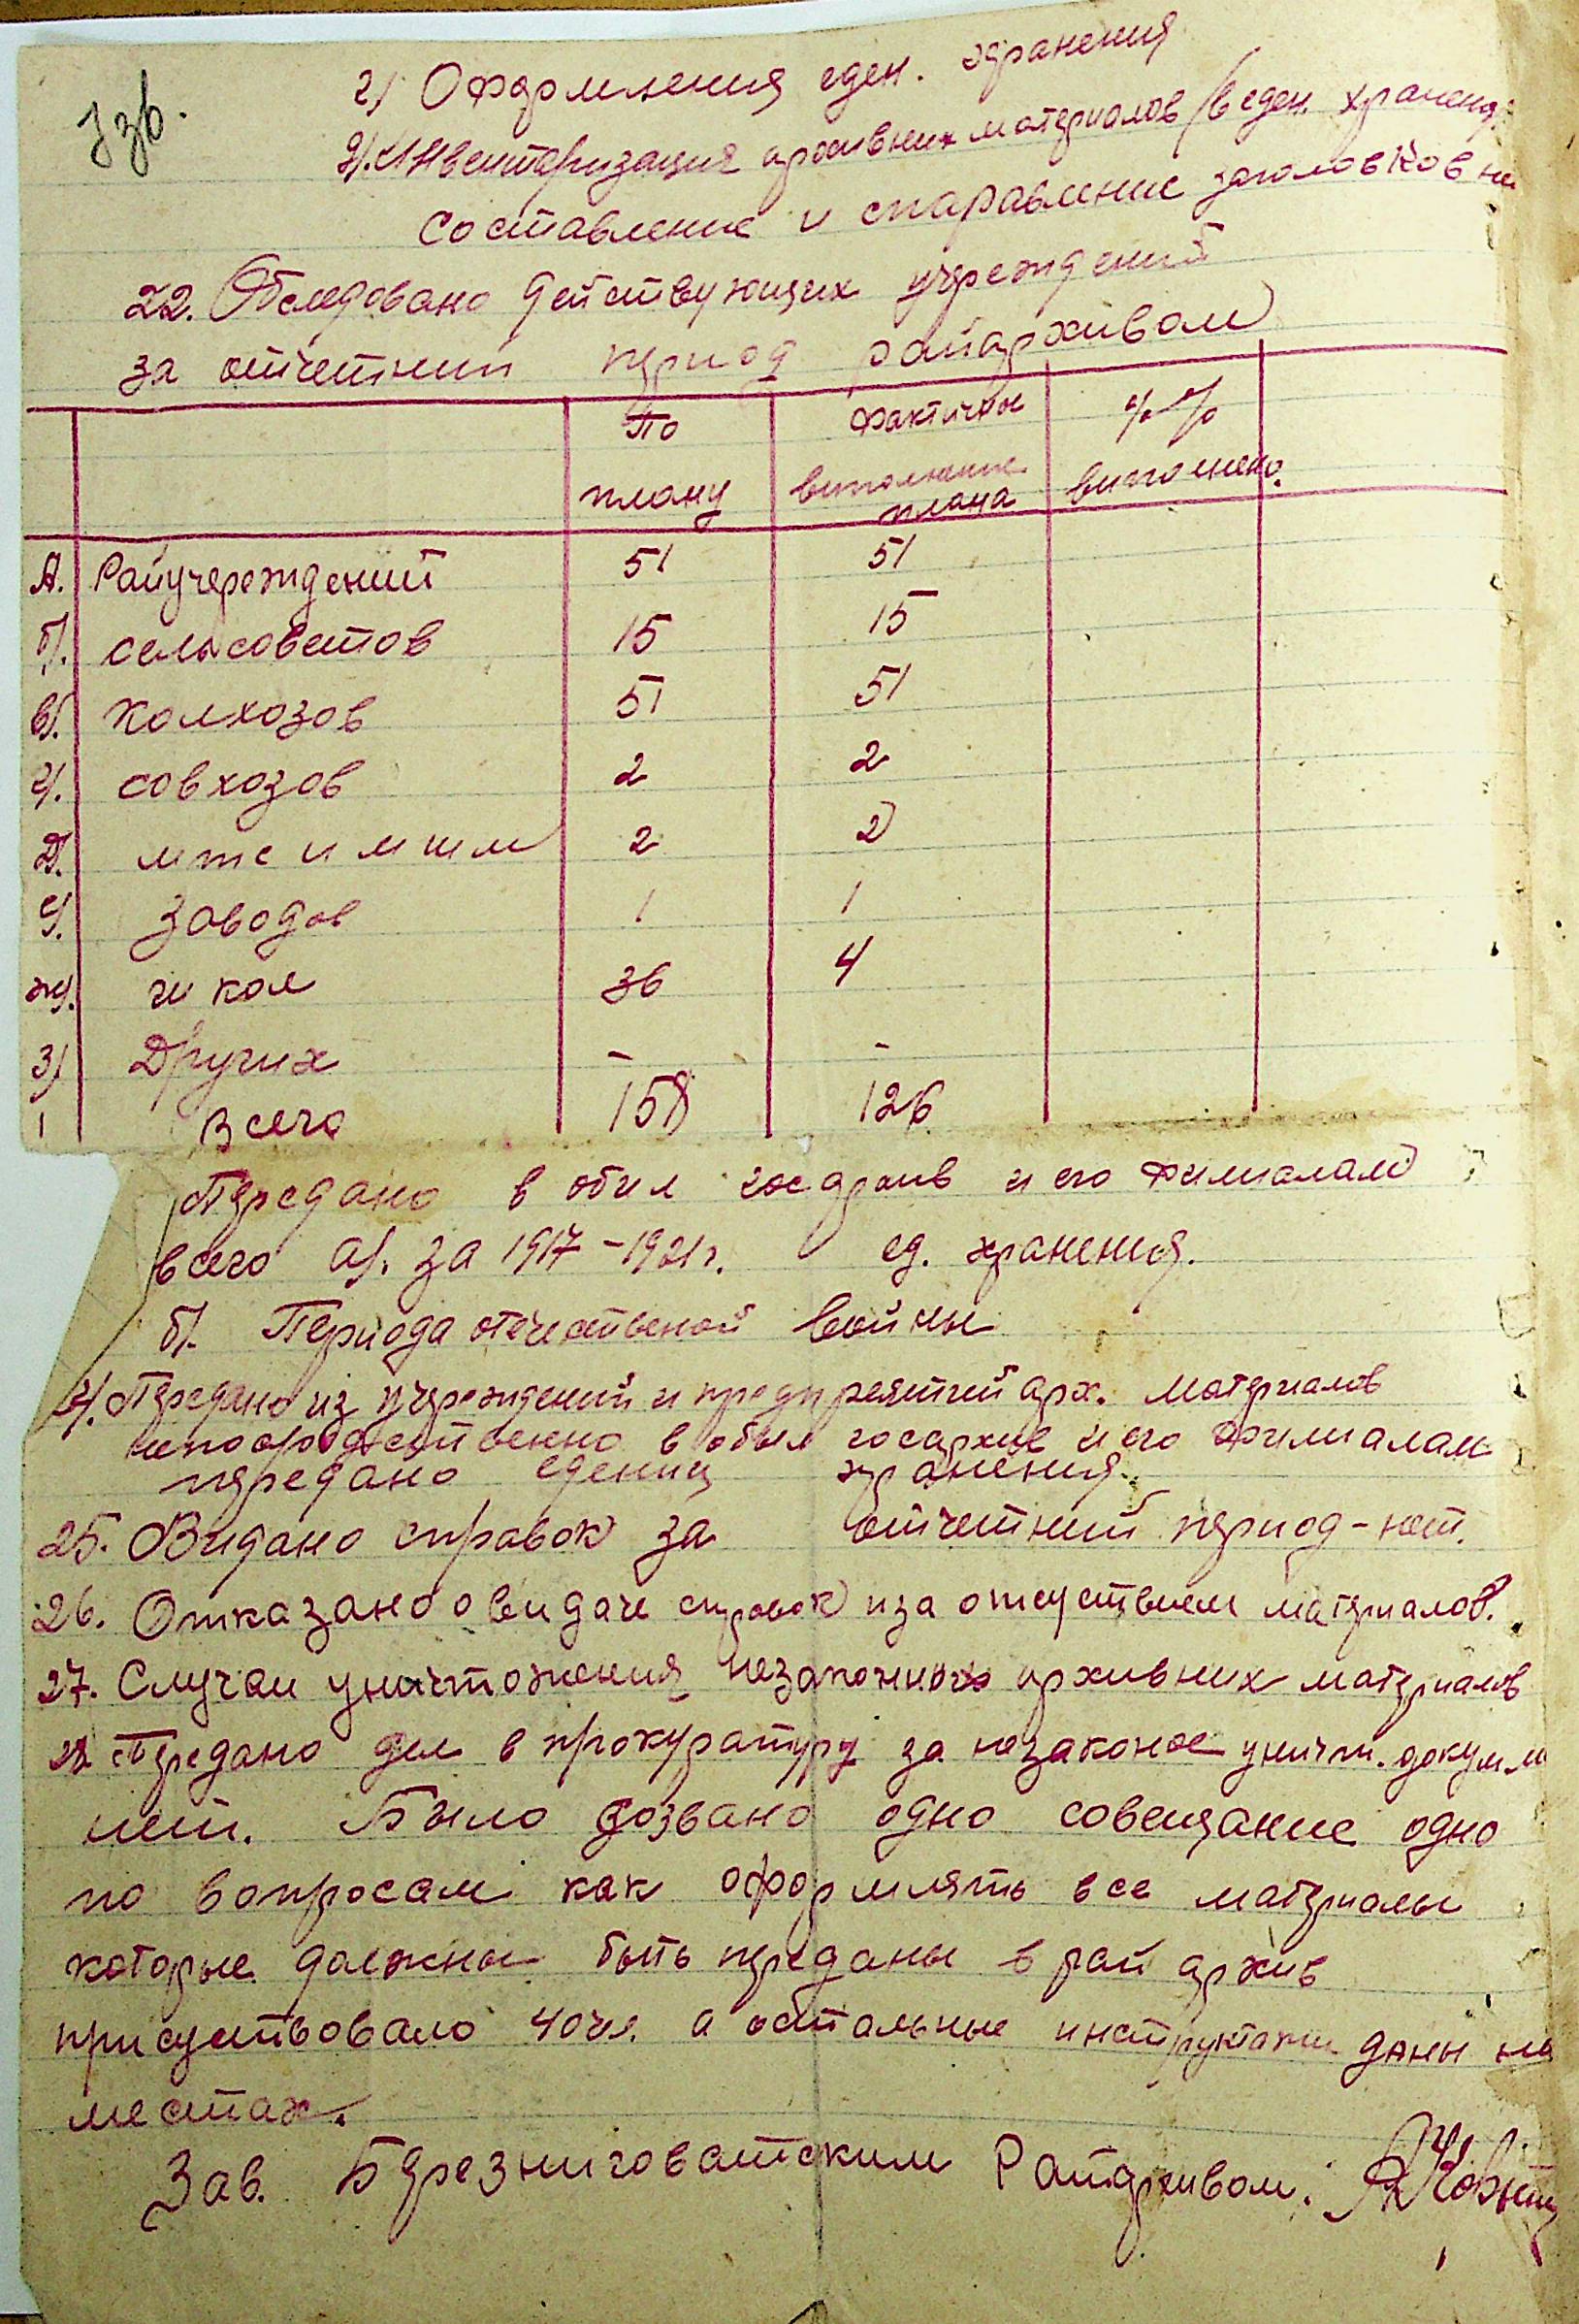 Изв.
г) Оформления еден. хранения
д). Инвентаризация архивних материалов (в еден. хранения
Составление и справление заголовков на
22. Обследовано действующих учреждений
за отчетнии период райархивом
По Фактичное %%
плану виполнение плана виполнено.
А. Райучереждений 51 51
б). сельсоветов 15 15
в). колхозов 51 51
г). совхозов 2 2
Д. мтс и мтм 2 2
е). заводов 1 1
ж). школ 36 4
з) Других - -
Всего 158 126
Передано в обл госархив и его филиалам
всего а). за 1917-1921 г. ед. хранения.
б). Периода отечественой войны
Передано из учреждений и предприятий арх. материалов
непосредственно в обл госархив и его филиалам
передано едениц хранения.
25. Видано справок за отчетний период - нет.
26. Отказано о видаче справок иза отсуствием материалов.
27. Случаи уничтожения незаконног архивних материалов
28 Передано дел в прокуратуру за незаконое уничт. докум.
нет. Было созвано одно совещание одно
по вопросам как оформлять все материалы
которые должны быть переданы в рай архив
присуствовало 40 чел. а остальные инструктажи даны на
местах.
Зав. Березниговатским Райархивом.